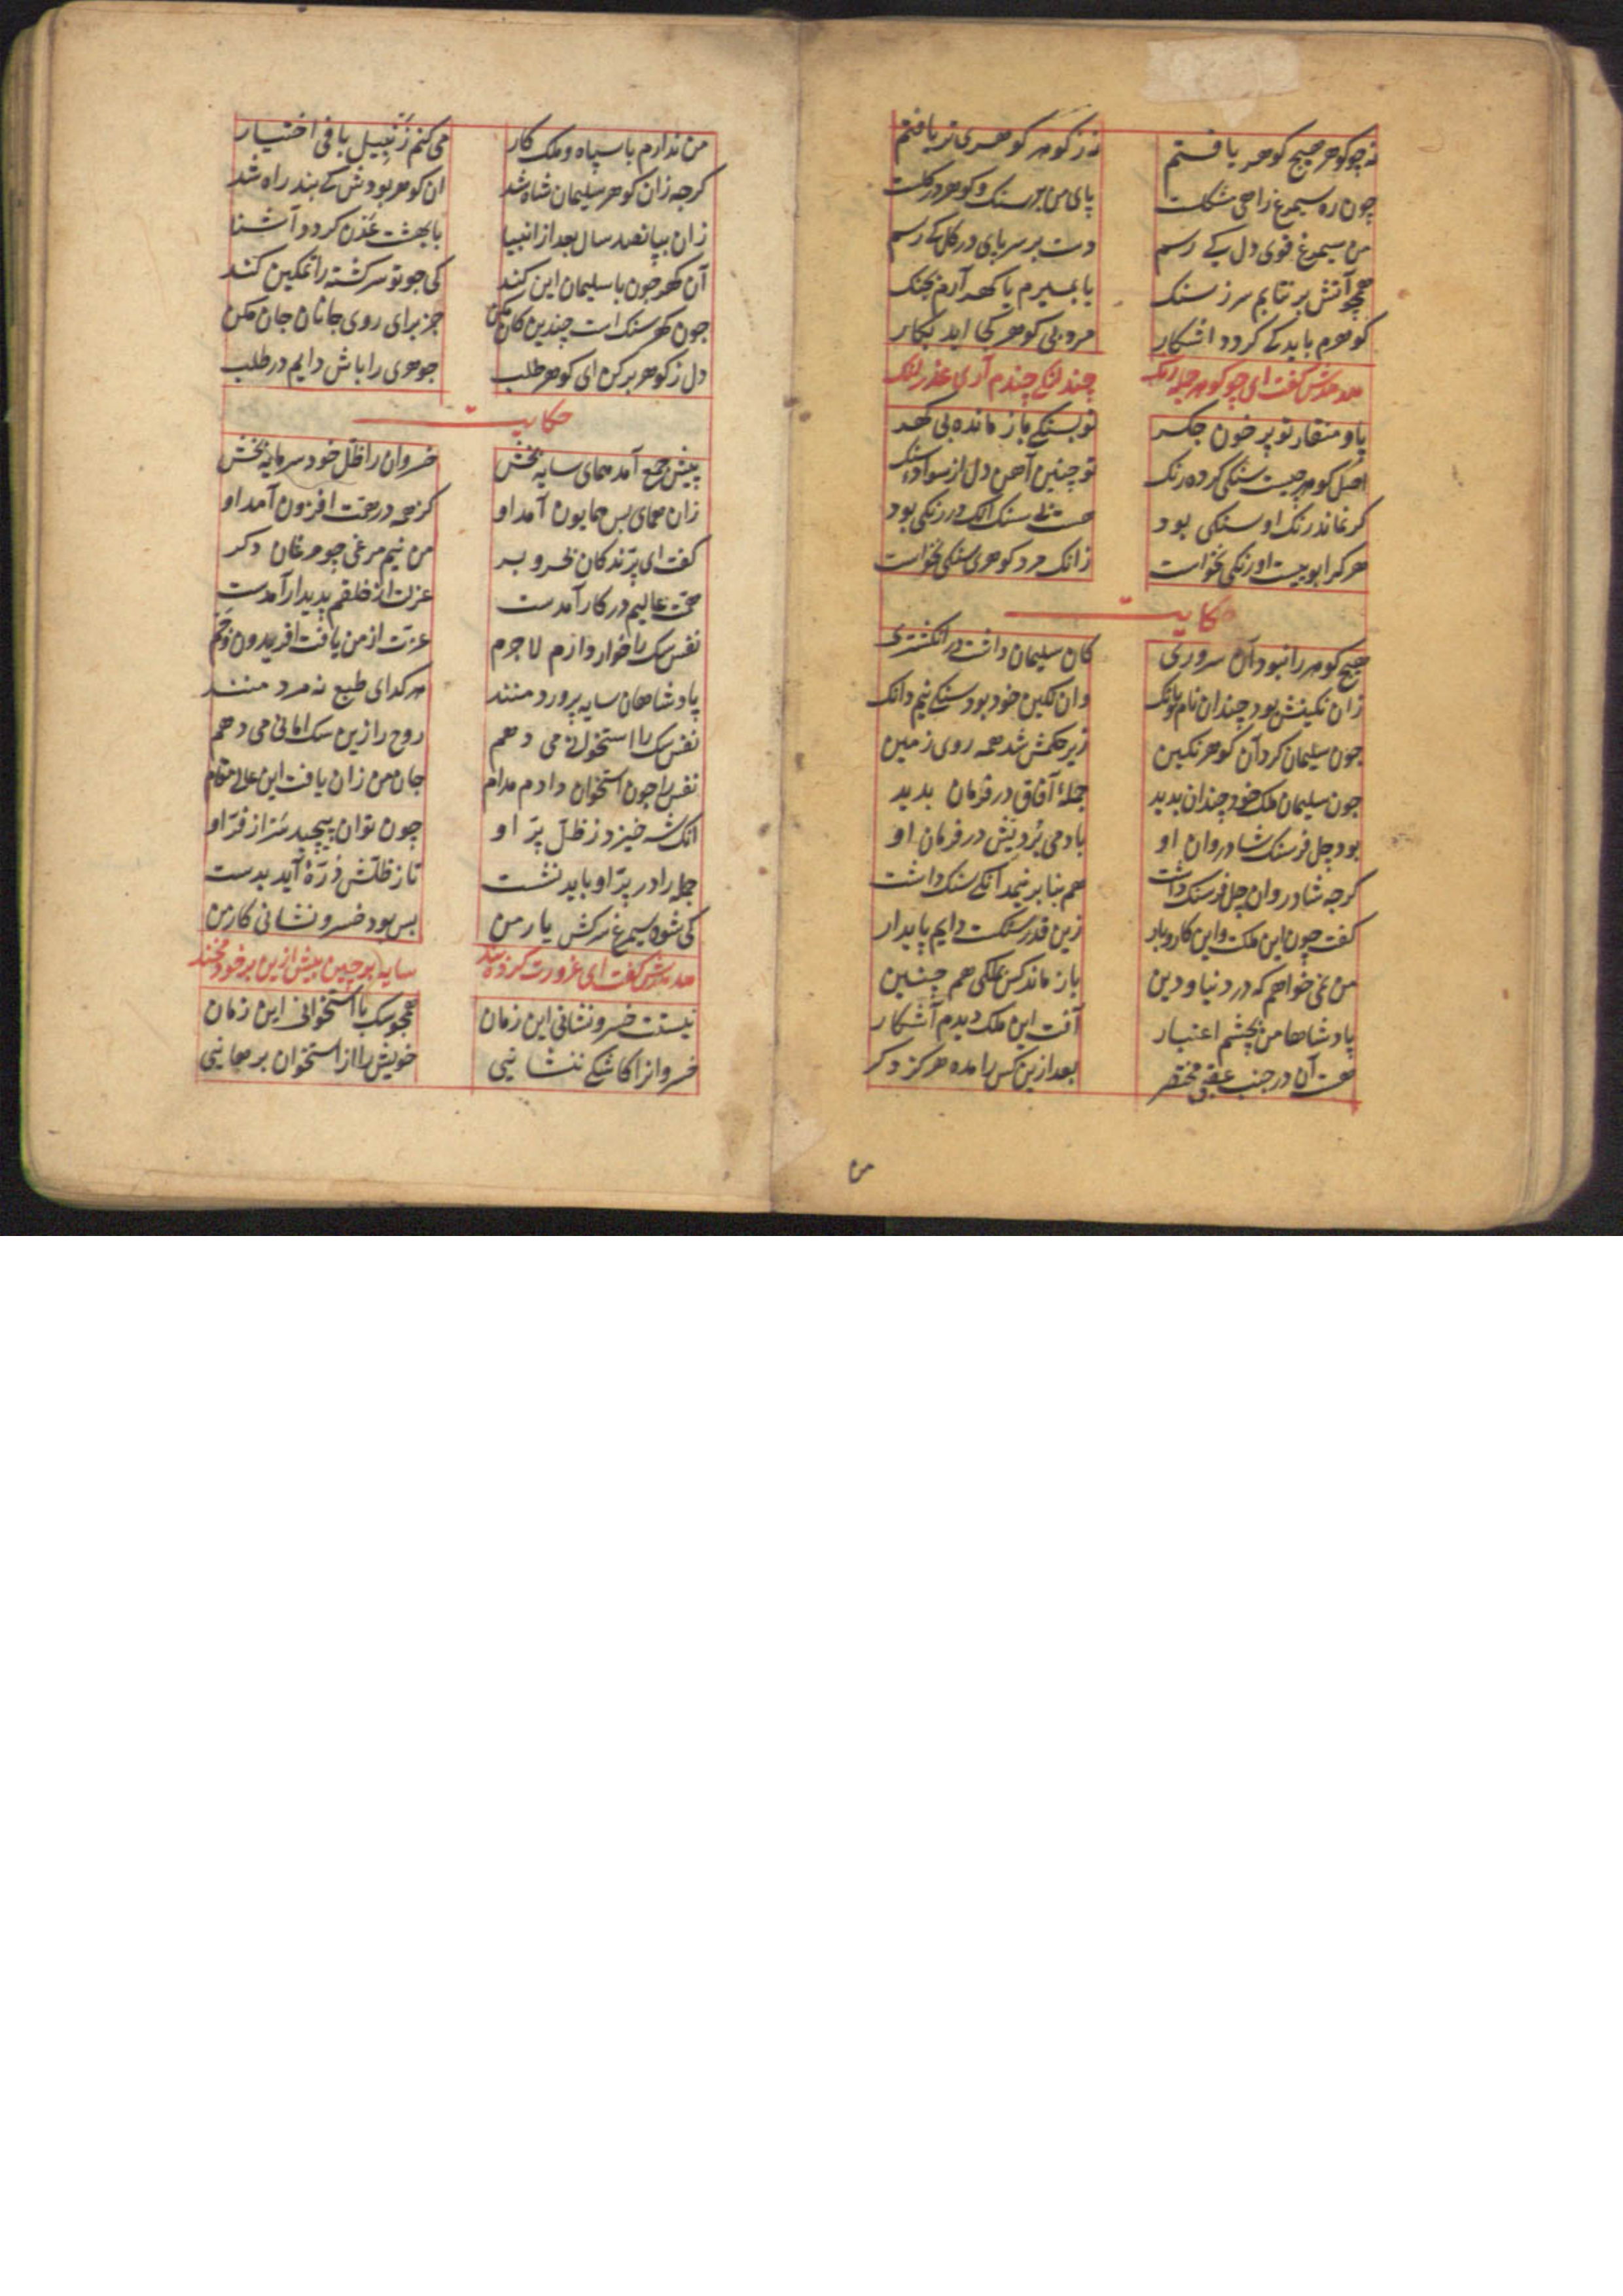 نه چو کوهر هیچ کوهر یافتم نه ز کوهر کوهری تر یافتم
چون ره سیمرغ راهی مشکلت پای من در سنک و کوهر در کلت
من سیمرغ قوی دل کے رسم دست بر سر پای در کل کے رسم
همچو آتش بر نتابم سر ز سنک یا بمیرم یا کهر آرم بجنک
کوهرم باید که کردد اشکار مرد بی کوهر کجا اید بکار
هدهدش کفت ای چو کوهر جمله رنک چند لنکی چندم آری عذر لنک
پا و منقار تو پر خون جکر تو بسنکے باز مانده بی کهر
اصل کوهر چیست سنکی کرده رنک تو چنین آهن دل از سوادء سنک
کر نماند رنک او سنکی بود هست بی سنک آنکه در رنکی بود
هر کرا بوییست او رنکی نخواست زانک مرد کوهری سنکی نخواست
حکایت
هیچ کوهر را نبود آن سروری کان سلیمان داشت در انکشتری
زان نکینش بود چندان نام و بانک وان نکین خود بود سنکے نیم دانک
چون سلیمان کرد آن کوهر نکین زیر حکمش شد همه روی زمین
چون سلیمان ملک خود چندان بدید جملهٔ آفاق در فرمان بدید
بود چل فرسنک شادروان او باد می بردیش در فرمان او
کرچه شادروان چل فرسنک داشت هم بنا بر نیم دانکے سنک داشت
کفت چون این ملکت و این کاروبار زین قدر سنکست دایم پایدار
من نمی خواهم که در دنیا و دین باز ماند کس بملکی هم چنین
پادشاها من بچشم اعتبار آفت این ملک دیدم آشکار
هست آن در جنب عقبی مختصر بعد ازین کس را مده هرکز دکر
من
من ندارم با سپاه و ملک کار می کنم زنبیل بافی اختیار
کرچه زان کوهر سلیمان شاه شد ان کوهر بودش که بند راه شد
زان بپانصد سال بعد از انبیا با بهشت عدن کردد آشنا
آن کهر چون با سلیمان این کند کی چو تو سرکشته را تمکین کند
چون کهر سنک است چندین کان مکن جز برای روی جانان جان مکن
دل ز کوهر بر کن ای کوهر طلب جوهری را باش دایم در طلب
حکایت
پیش جمع آمد همای سایه بخش خسروان را ظل خود سرمایه بخش
زان همای بس همایون آمد او کز همه در همت افزون آمد او
کفت ای پرندکان بحر و بر من نیم مرغی چو مرغان دکر
همت عالیم در کار آمدست عزلت از خلقم پدیدار آمدست
نفس سک را خوار دارم لاجرم عزت از من یافت افریدون و جم
پادشاهان سایه پرورد منند هر کدای طبع نه مرد منند
نفس سک را استخوانی می دهم روح را زین سک امانی می دهم
نفس را چون استخوان دادم مدام جان من زان یافت این عالی مقام
انک شه خیزد ز ظل پرّ او چون توان پیچید سر از فرّ او
جمله را در پرّ او باید نشست تا ز ظلش ذرّهٔ آید بدست
کی شود سیمرغ سرکش یار من بس بود خسرو نشانی کار من
هدهدش کفت ای غرورت کرده بند سایه بر چین بیش ازین بر خود مخند
نیستت خسرو نشانی این زمان همچو سک با استخوانی این زمان
خسروانرا کاشکے ننشانیی خویش را از استخوان برهانیی